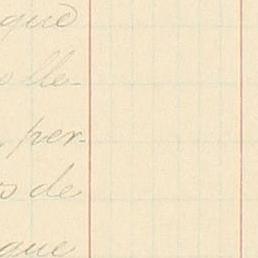 que
lle-
per-
s de
que